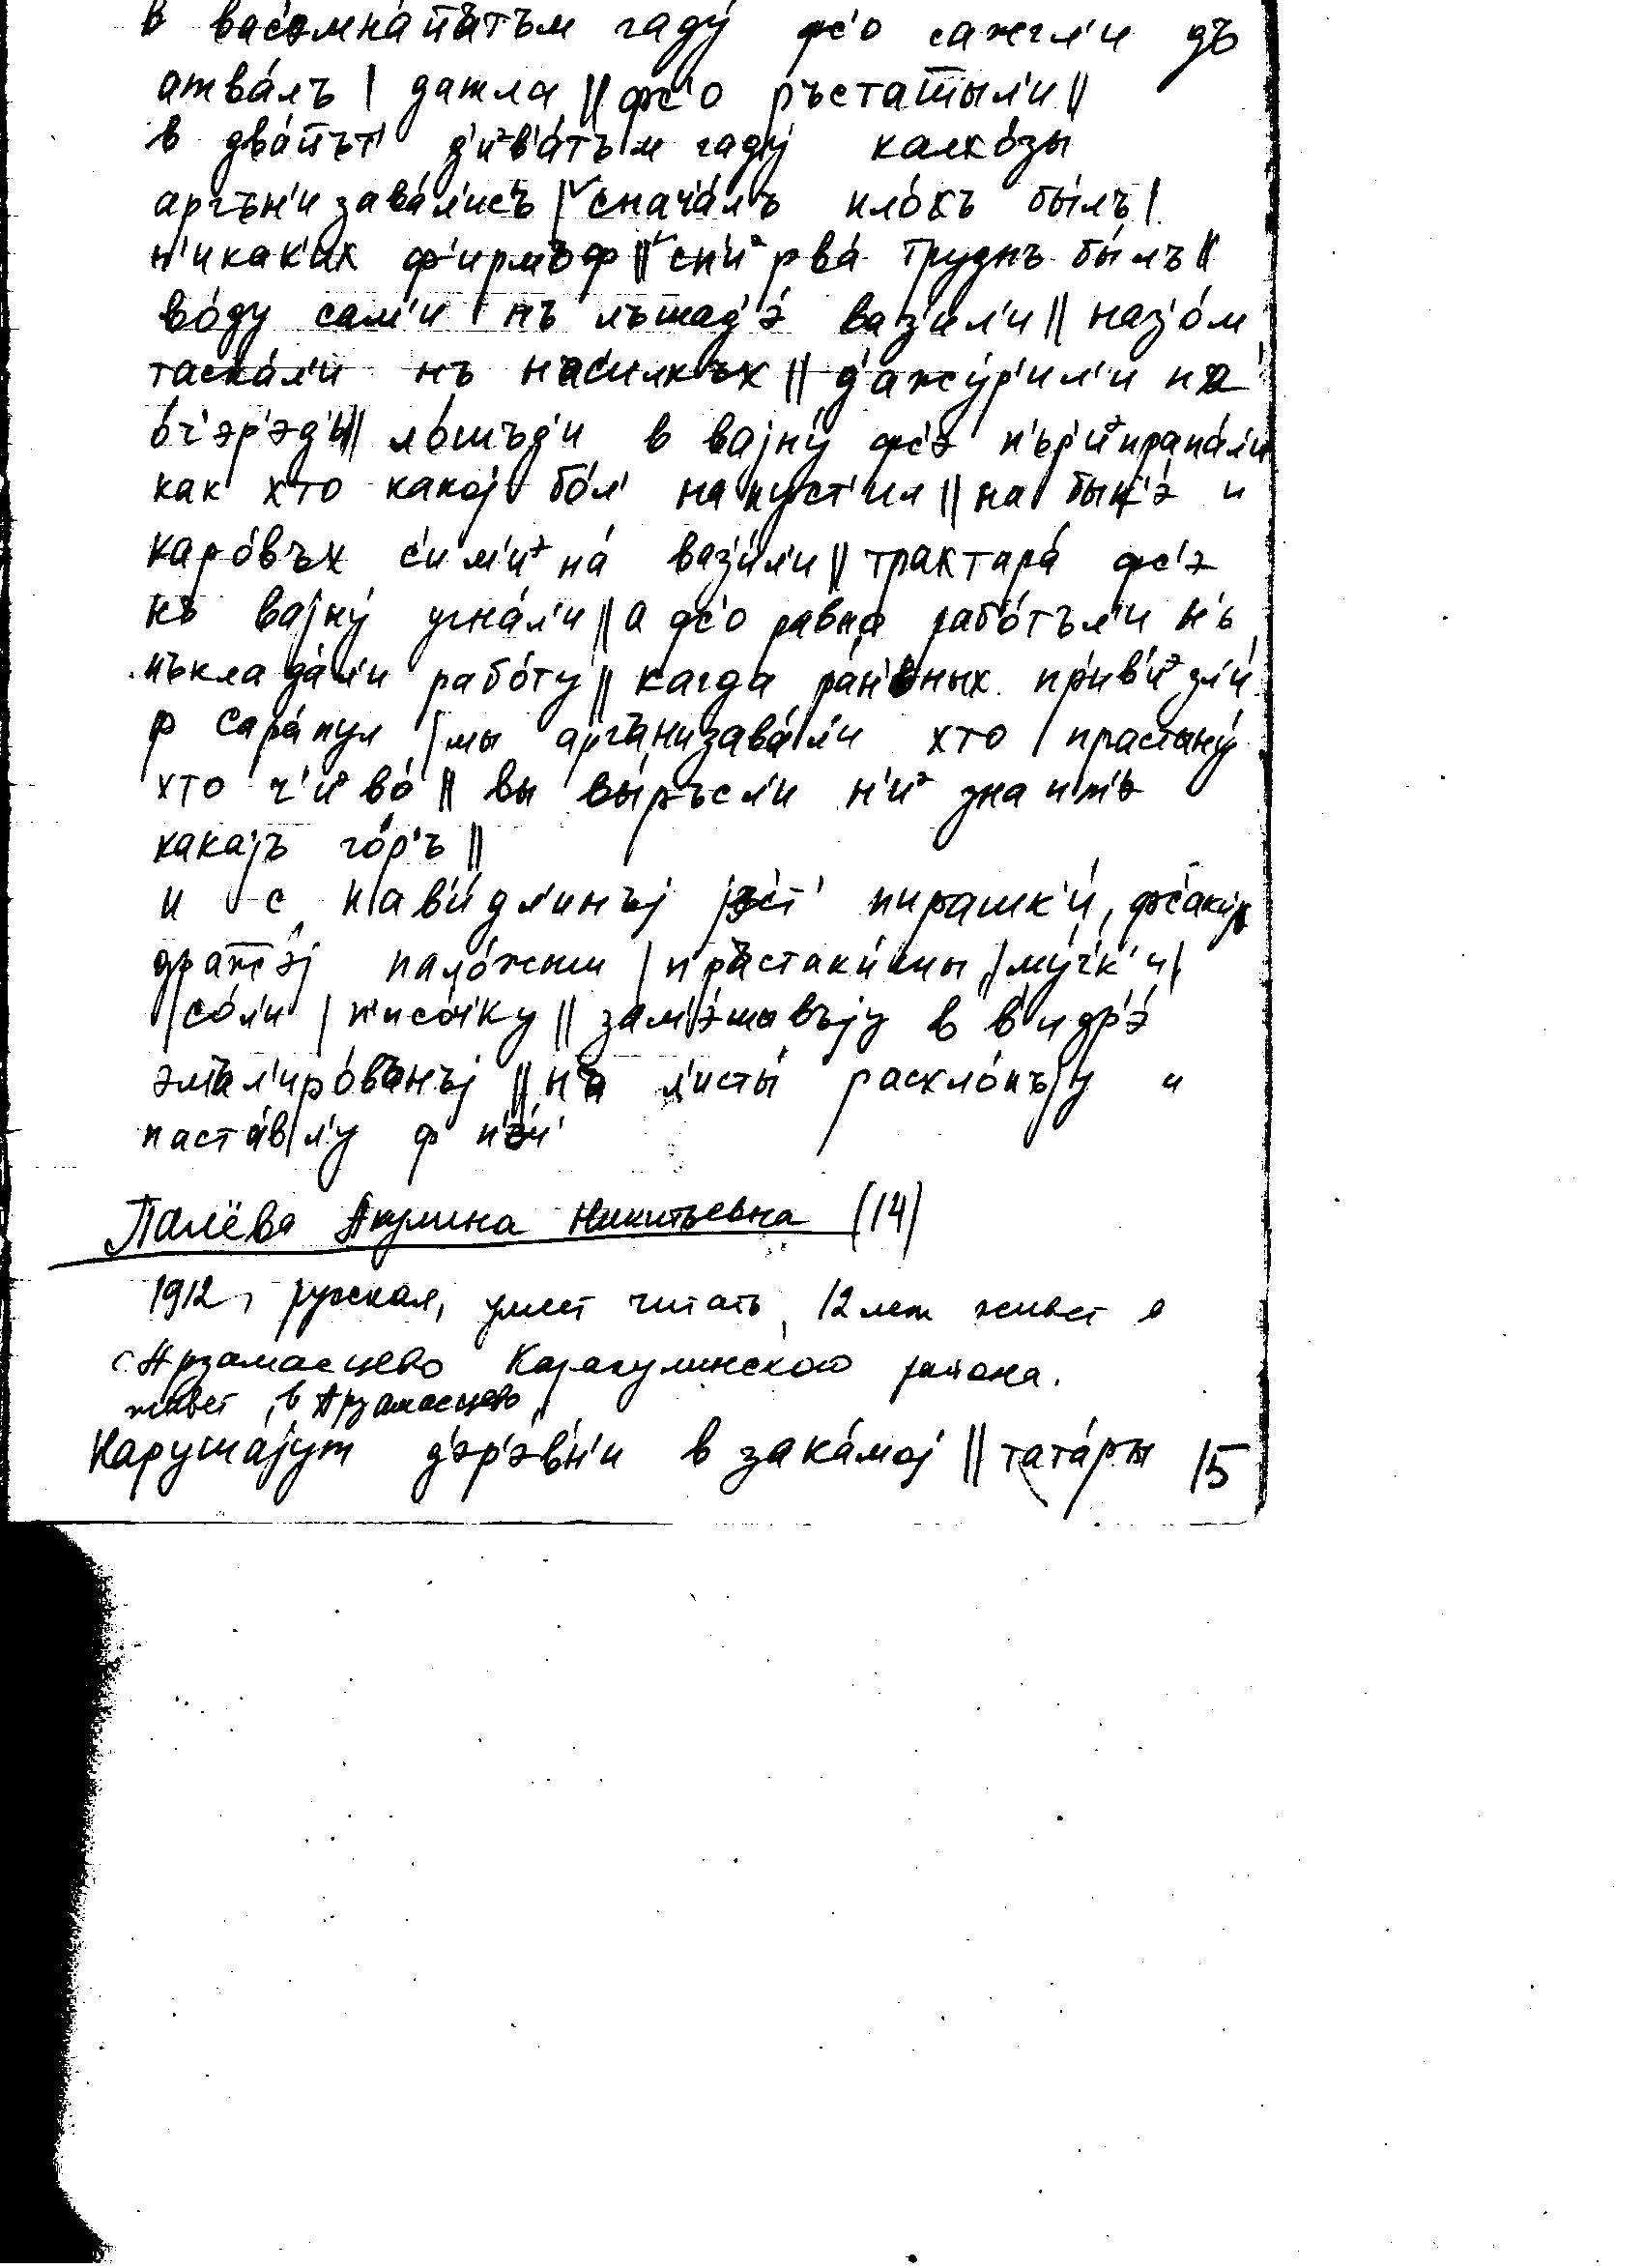 в вас'эмна́ц̄ътъм гаду́ фс'о сажгл'и дъ
атва́лъ | датла || фс'о ръстат̄ы́л'и ||
в два́ц̄ът' д'иэв'а́тъм гаду́ калхо́зы
аргън'изава́л'ис'ь | снача́лъ пло́хъ бы́лъ |
н'икак'их ф'ирмъф || сп'иэрва́ труднъ бы́лъ ||
во́ду сам'и нъ лъшад'э́ ваз'ил'и || назо́м
таска́л'и нъ нас'илкъх || д'ажу́р'ил'и па
о́ч'эр'эд'и || ло́шъд'и в вајну́ фс'э п'ър'иэпрапа́л'и
как хто какој бо́л' напуст'ил || на бык'э́ и
каро́въх с'им'иэна́ ваз'и́л'и || трактара́ фс'э
нъ вајну́ угна́л'и || а фс'о равно рабо́тъл'и н'ь
пъклада́л'и рабо́ту || кагда ра́н'ьных пр'ив'иэзл'и́
ф Сара́пул | мы арганизава́л'и хто прастыну́
хто ч'иэво́ || вы вы́ръсл'и н'иэ знаит'ь
какајъ го́р'ъ ||
и с пав'и́дл'инъј јэс'т' пирашк'и́, фс'аких
дražэ́j пало́жиш | пръстак'и́шы | му́ч'к'и |
со́л'и | п'исо́ч'ку || зам'э́шывъју в в'идр'э́
эмъл'иро́ванъј || на л'исты́ расхло́пъју и
паста́вл'у ф п'эч'
Палёва Акулина Никитьевна (14)
1912, русская, умеет читать, 12 лет живет в
с. Арзамасцево Каракулинского района.
живет в Арзамасцево
Нарушајут д'эр'э́вн'и в зака́мој || тата́ры 15